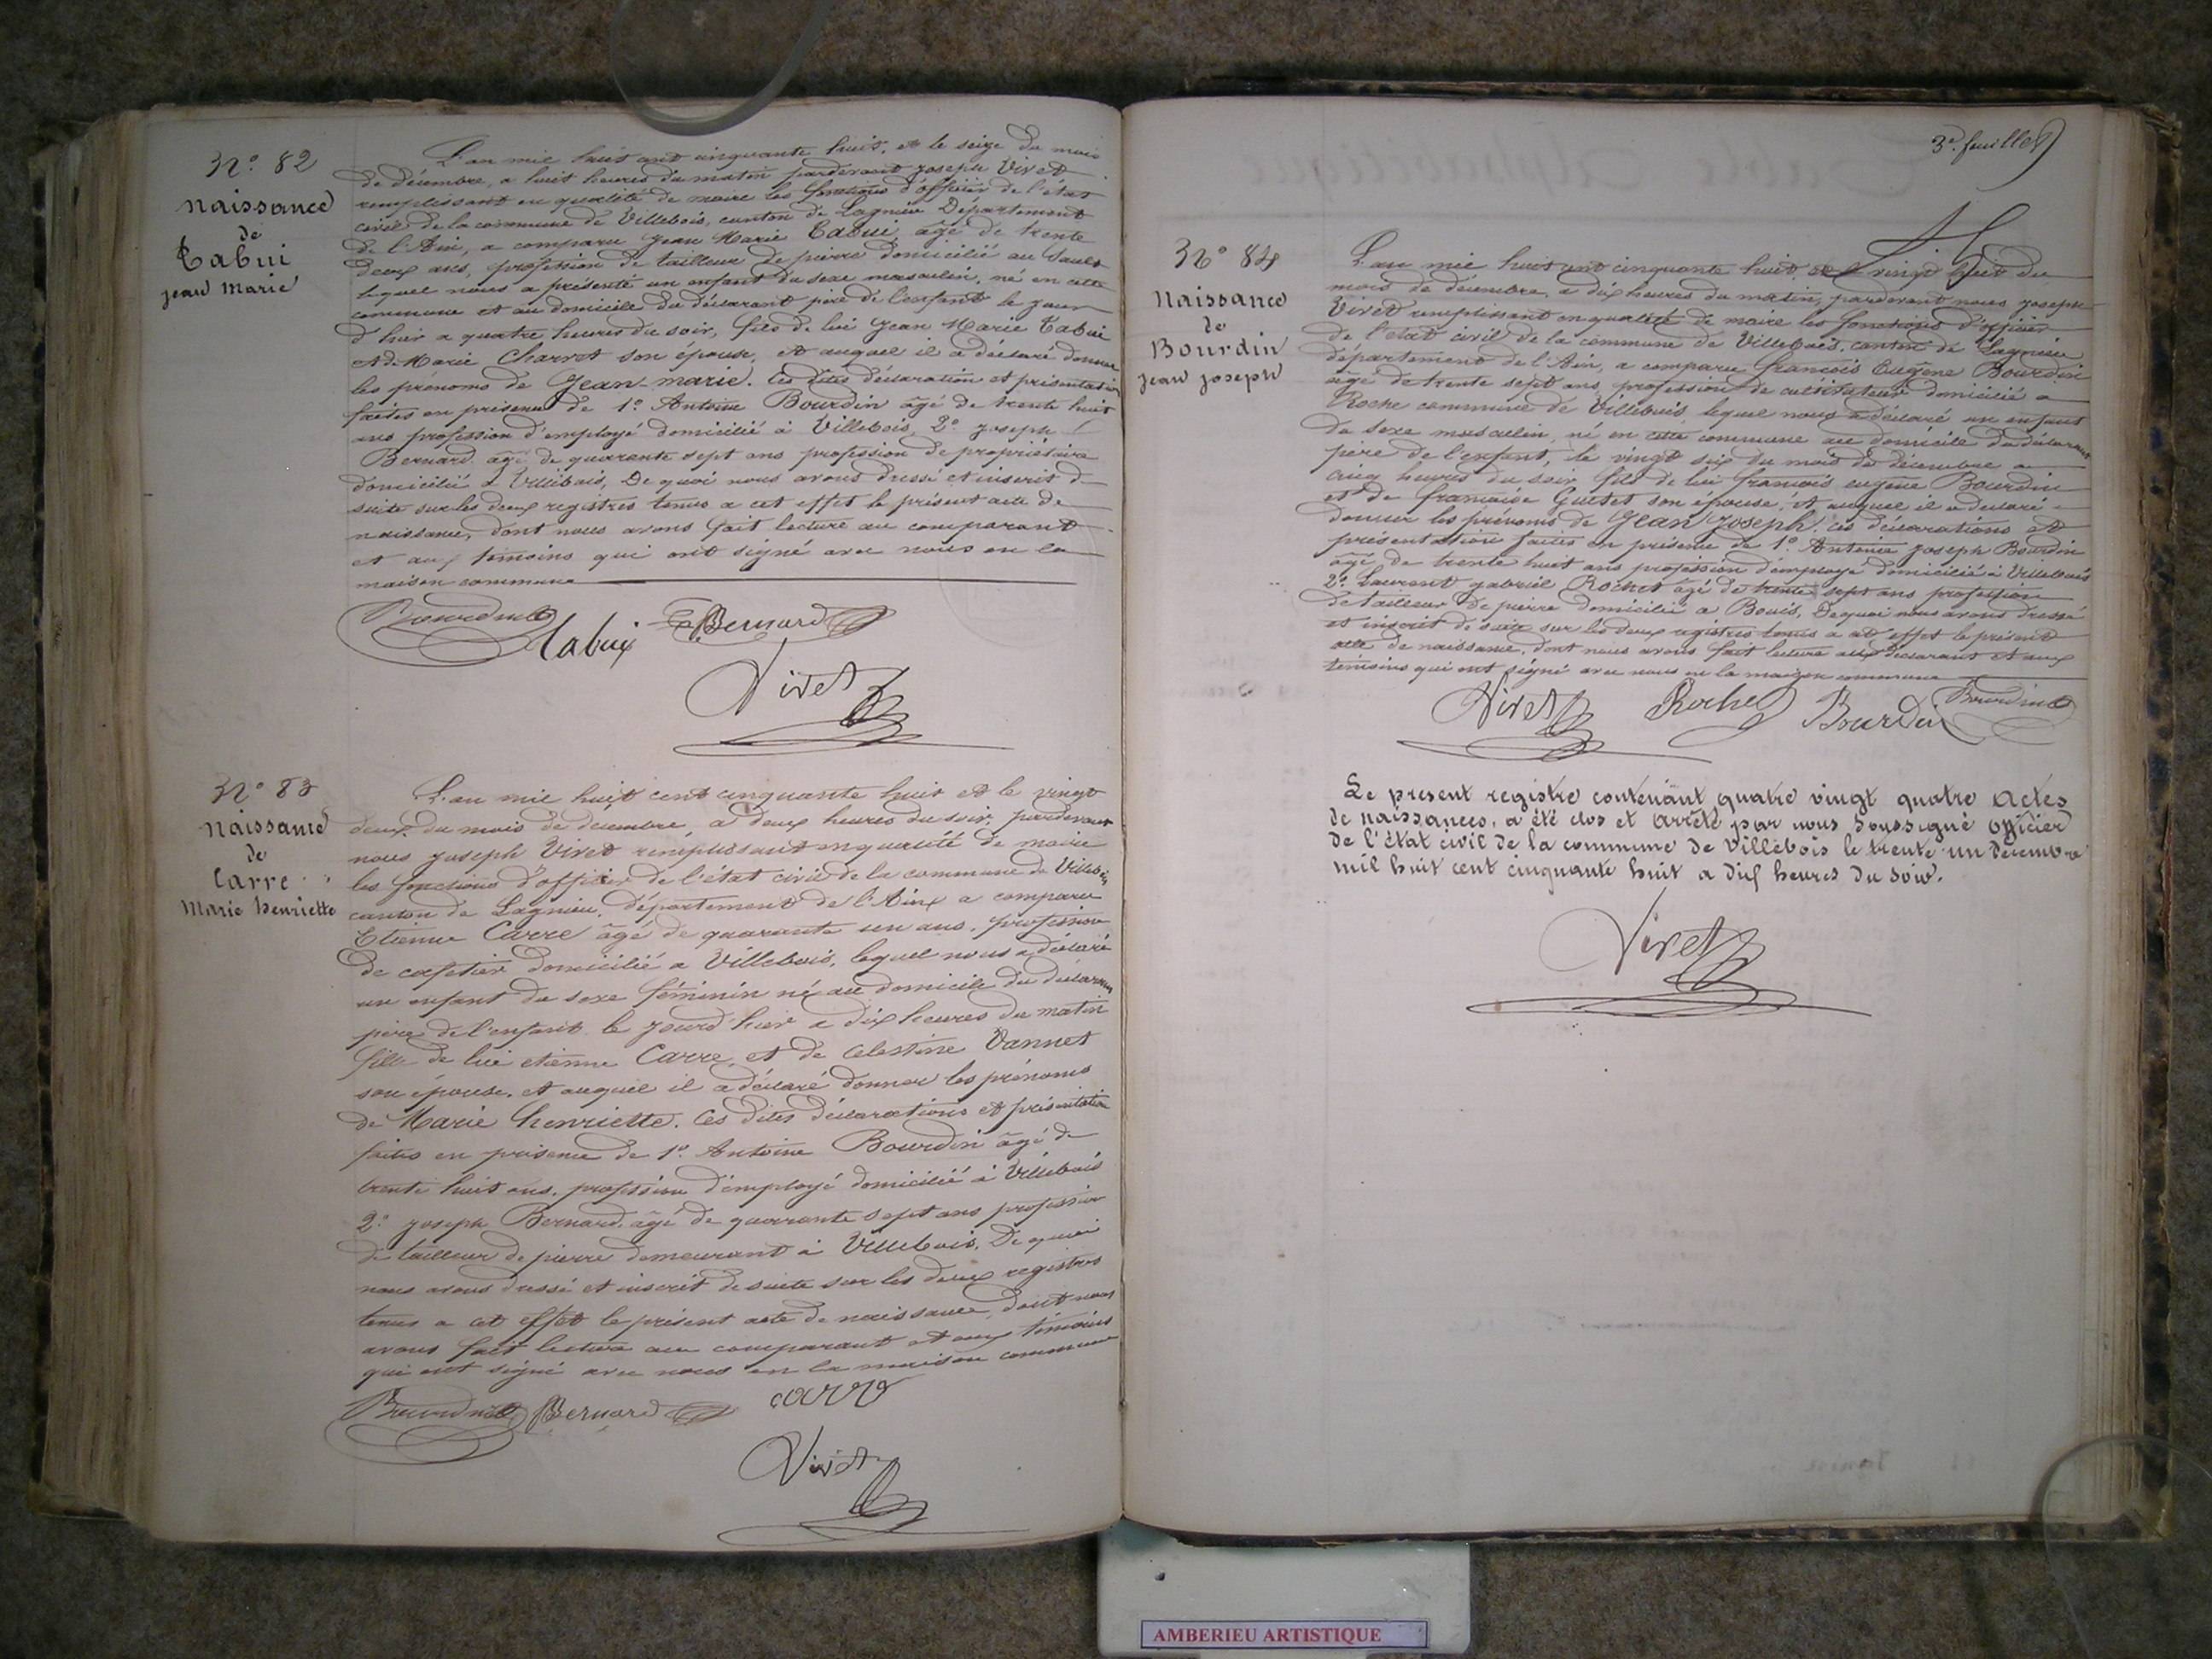 N.° 82
Naissance
de
Tabui
jean Marie
L'an mil huit cent cinquante huit, et le seize du mois
de décembre, a huit heures du matin pardevant joseph Vivet
remplissant en qualité de maire les fonctions d'officier de l'état
civil de la commune de Villebois, canton de Lagnieu Département
de l'Ain, a comparu jean Marie Tabui âgé de trente
deux ans, profession de tailleur de pierre domicilié au Sault
lequel nous a présenté un enfant du sexe masculin, né en cette
commune et au domicile du déclarant père de l'enfant le jour
d'hier a quatre heures du soir, fils de lui jean Marie Tabui
et de Marie Charret son épouse, et auquel il a déclaré donner
les prenoms de Jean-marie. Ces dites déclaration et présentation
faites en présence de 1.° Antoine Bourdin âgé de trente huit
ans profession d'employé domicilié à Villebois, 2.° joseph
Bernard âgé de quarante sept ans profession de propriétaire
domicilié à Villebois, De quoi nous avons dressé et inscrit de
suite sur les deux registres tenus a cet effet le présent acte de
naissance, dont nous avons fait lecture au comparant
et aux témoins qui ont signé avec nous en la
maison commune
Bourdin Tabui Bernard
Vivet
N.° 83
Naissance
de
Carre
Marie henriette
L'an mil huit cent cinquante huit et le vingt
deux du mois de décembre, a deux heures du soir, pardevant
nous joseph Vivet remplissant en qualité de maire
les fonctions d'officier de l'état civil de la commune de Villebois
canton de Lagnieu, département de l'Ain a comparu
Etienne Carre âgé de quarante un ans, profession
de cafetier domicilié a Villebois, lequel nous a déclaré
un enfant du sexe féminin né au domicile du déclarant
père de l'enfant le jourd'hier a dix heures du matin
fille de lui etienne Carre, et de Celestine Vannet
son épouse, et auquel il a déclaré donner les prénoms
de Marie henriette. Ces dites déclarations et présentation
faites en présence de 1.° Antoine Bourdin âgé de
trente huit ans, profession d'employé domicilié à Villebois
2.° joseph Bernard, âgé de quarante sept ans profession
de tailleur de pierre demeurant à Villebois, De quoi
nous avons dressé et inscrit de suite sur les deux registres
tenus a cet effet le présent acte de naissance, dont nous
avons fait lecture au comparant et aux témoins
qui ont signé avec nous en la maison commune
Bourdin Bernard carre
Vivet
3.e feuillet
N° 84
Naissance
de
Bourdin
jean joseph
L'an mil huit cent cinquante huit et le vingt huit du
mois de décembre, a dix heures du matin, pardevant nous joseph
Vivet remplissant en qualité de maire les fonctions d'officier
de l'etat civil de la commune de Villebois, canton de Lagnieu
département de l'Ain, a comparu francois Eugene Bourdin
âgé de trente sept ans, profession de cultivateur domicilié a
Roche commune de Villebois lequel nous a déclaré un enfant
du sexe masculin, né en cette commune au domicile du déclarant
père de l'enfant, le vingt six du mois de décembre a
cinq heures du soir fils de lui francois eugene Bourdin
et de francoise Guetet son épouse, et auquel il a déclaré
donner les prénoms de Jean Joseph. ces déclarations et
présentation faites en présence de 1.° Antoine joseph Bourdin
âgé de trente huit ans profession d'employé domicilié à Villebois
2.° Laurent gabriel Rochet âgé de trente sept ans profession
de tailleur de pierre domicilié a Bouis, De quoi nous avons dressé
et inscrit de suite sur les deux registres tenus a cet effet le présent
acte de naissance, dont nous avons fait lecture aux déclarant et aux
témoins qui ont signé avec nous en la maison commune
Vivet Rochet Bourdin Bourdin
Le present registre contenant quatre vingt quatre actes
de naissances, a été clos et arrêté par nous soussigné officier
de l'état civil de la commune de Villebois le trente un décembre
mil huit cent cinquante huit a dix heures du soir.
Vivet
AMBERIEU ARTISTIQUE